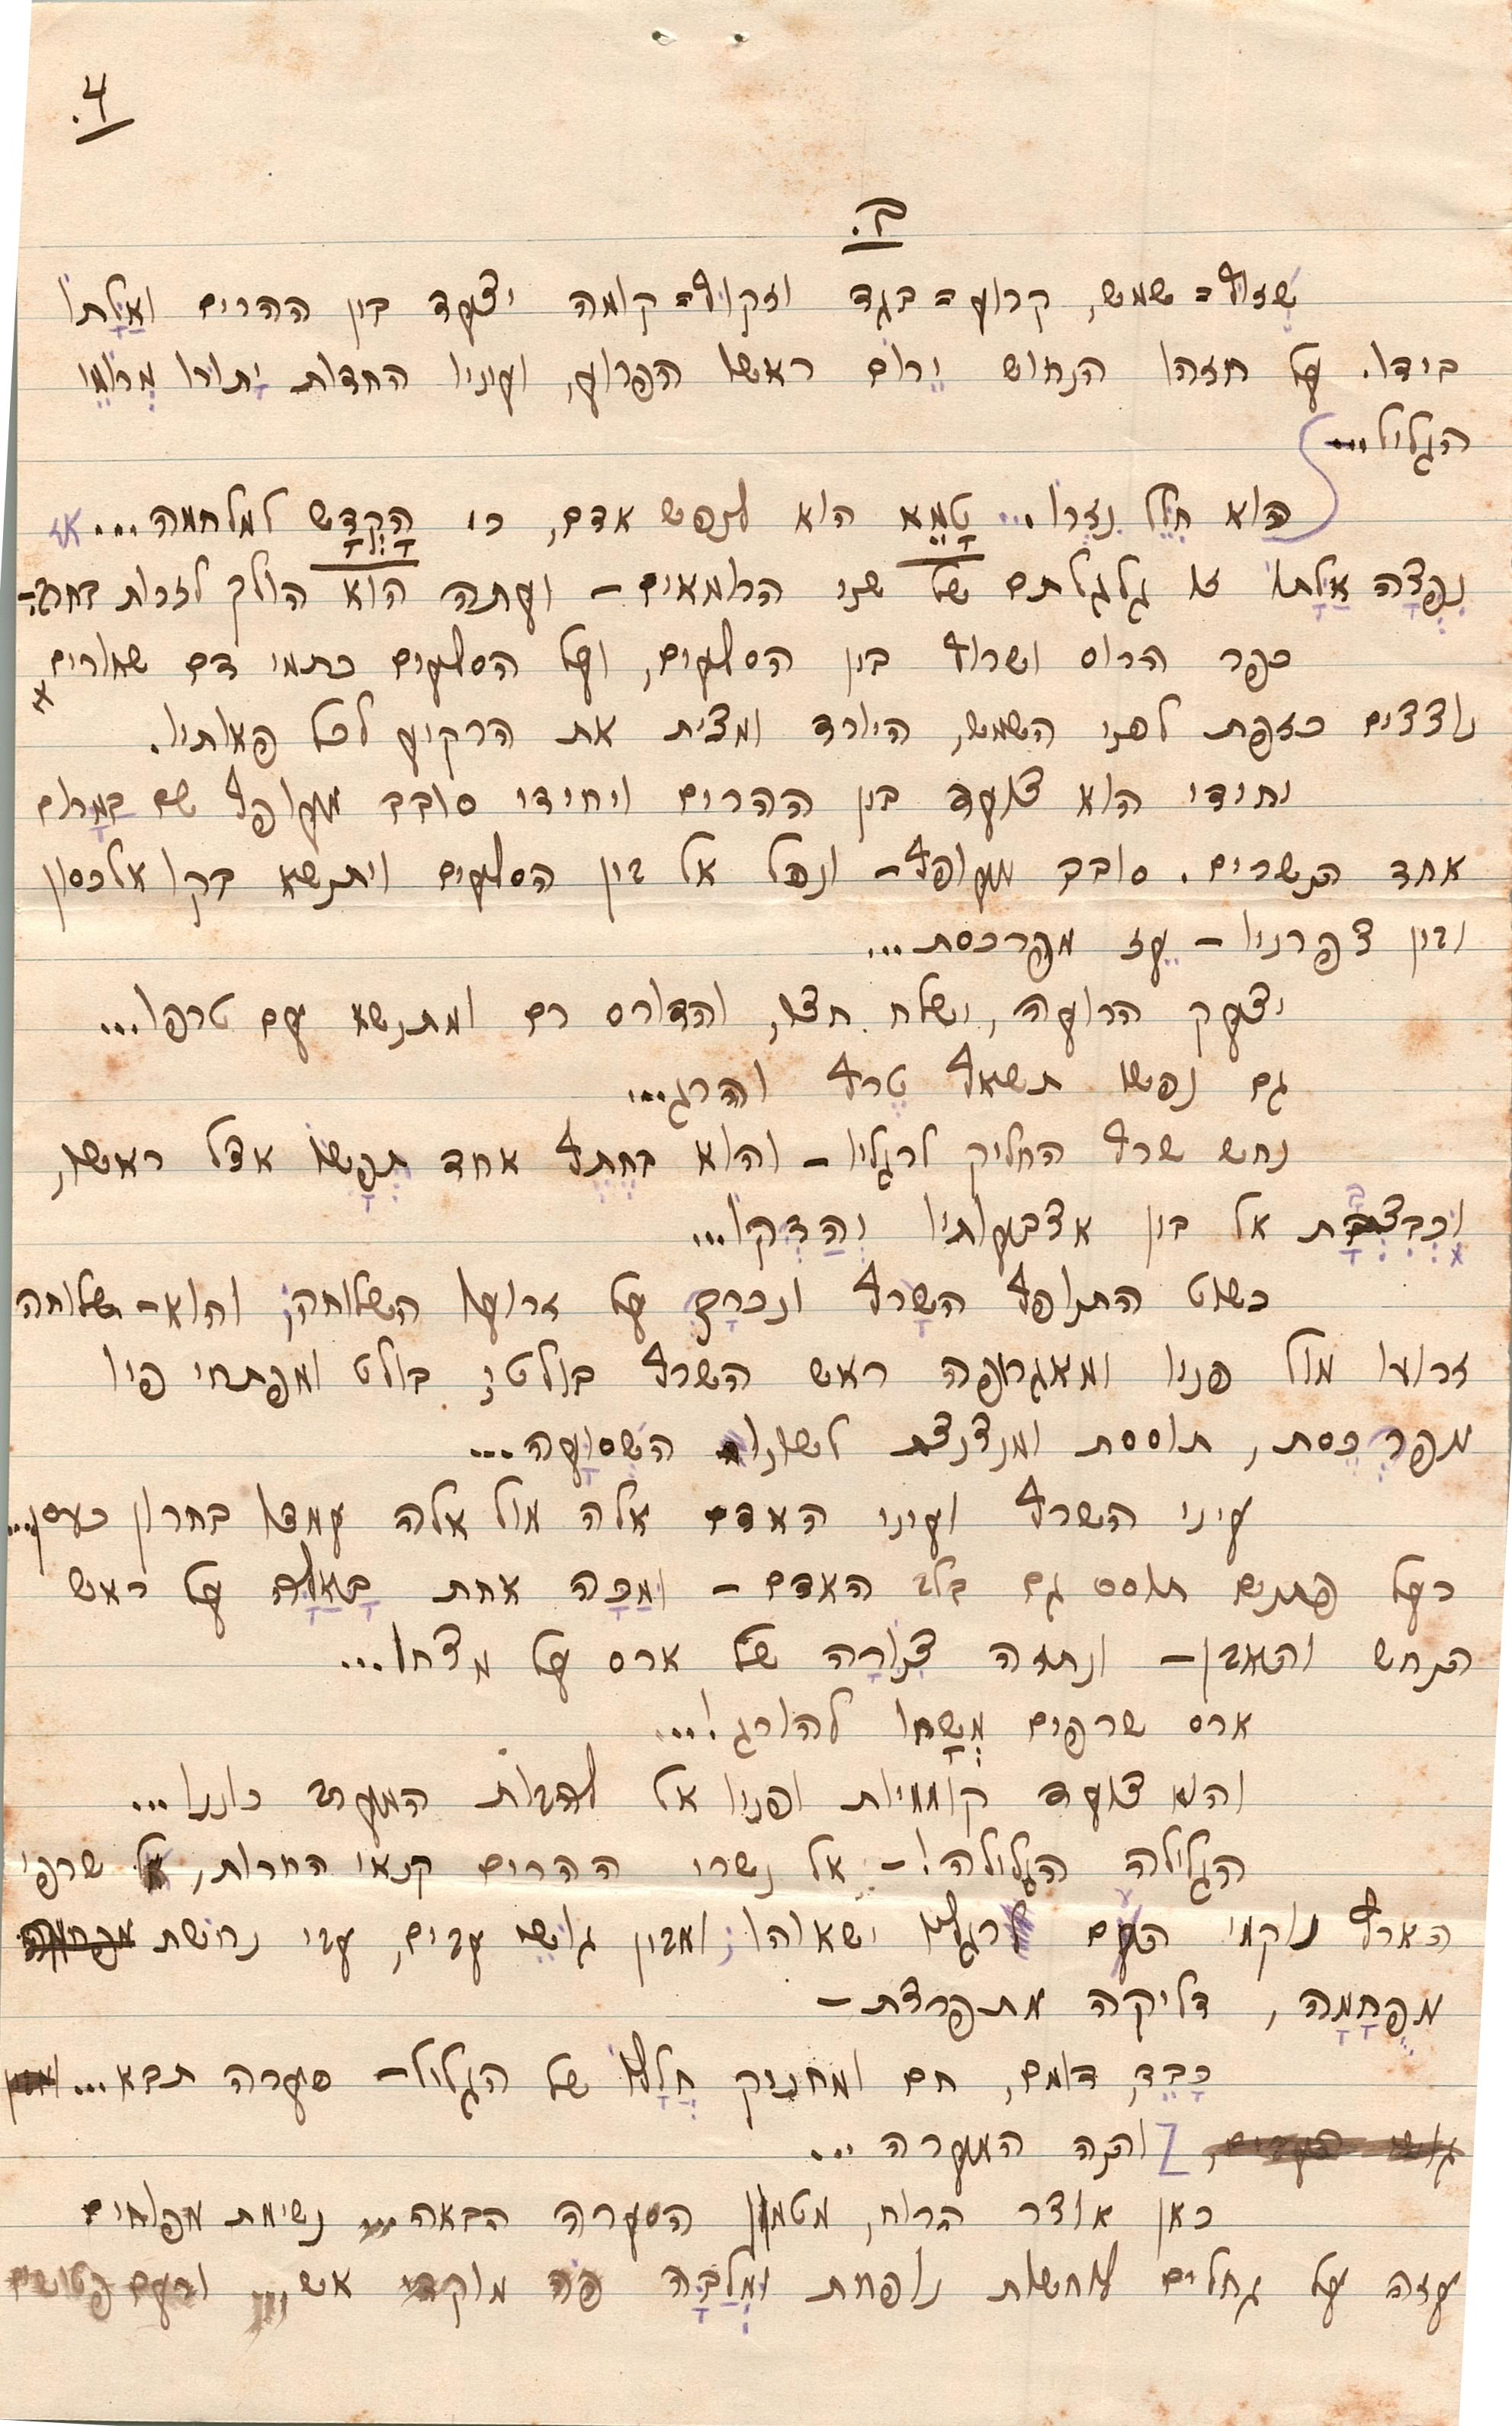 4.
ב.
שזוף=שמש, קרוע=בגד וזקוף=קומה יצעד בין ההרים וְאַלָּתוֹ
בידו. על חזהו הנחוש יָרוֹם ראשו הפרוע, ועיניו החדות יָתוּרוּ מְרוֹמֵי
הגליל...
הוא חִלֵּל נִזְרוֹ... טָמֵא הוא לנפש אדם, כי הָקְדַּשׁ למלחמה... אז
נִפְּצָה אַלָּתוֹ זו גלגלתם של שני הרומאים – ועתה הוא הולך לזרות
כפר הרוס ושרוף בין הסלעים, ועל הסלעים כתמי דם שחורים
נוצצים כזפת לפני השמש, היורד ומצית את הרקיע לכל פאותיו.
יחידי הוא צועד בין ההרים ויחידי סובב מעופף שם בַּמָּרוֹם
אחד הנשרים. סובב מעופף – ונפל אל בין הסלעים ויתנשא בקו אלכסון
ובין צפרניו – עֵז מפרכסת...
יצעק הרועה, ישלח חצו, והדורס רם ומתנשא עם טרפו...
גם נפשו תשאף טֶרֶף והרג...
נחש שרף החליק לרגליו – והוא בְּחֶתֶף אחד תְּפָשׂוֹ אצל ראשו,
וְכִבְצְבָת אל בין אצבעותיו וְהִדְּקוֹ...
כשוט התנופף השָּׂרָף ונכרך על זרועו השלוחה; והוא – שלוחה
זרועו מול פניו ומאגרופה ראש השרף בולט; בולט ומפתחי פיו
מפרכֶּסת, תוססת ומנצנצת לשונו השְּׁסוּעָה...
עיני השרף ועיני האדם אלה מול אלה עמדו בחרון כעסן...
רעל פתנים תוסס גם בלב האדם – וּמַכָּה אחת בָּאַלָּה על ראש
הנחש והאבן – ונתזה צִנּוֹרָה של ארס על מצחו...
ארס שרפים מְשָׁחוֹ להורג!...
והוא צועד קוממיות ופניו אל להבות המערב כוננו...
הגלילה הגלילה! – אל נשרי ההרים קנאי החרות, אל שרפי
הארץ נוקמי העם רגליו ישאוהו; ומבין גושי עבים, עבי נחושת
מְפֻחָמָה, דליקה מתפרצת –
כָּבֵד, דומם, חם ומחניק חֲלָלוֹ של הגליל – סערה תבא...
והנה המערה...
כאן אוצר הרוח, מטמון הסערה הבאה... נשימת מפוחים
עזה על גחלים לוחשות נופחת וּמְלַבָּה פֹּה מוקדי אש... ורעם פטישים